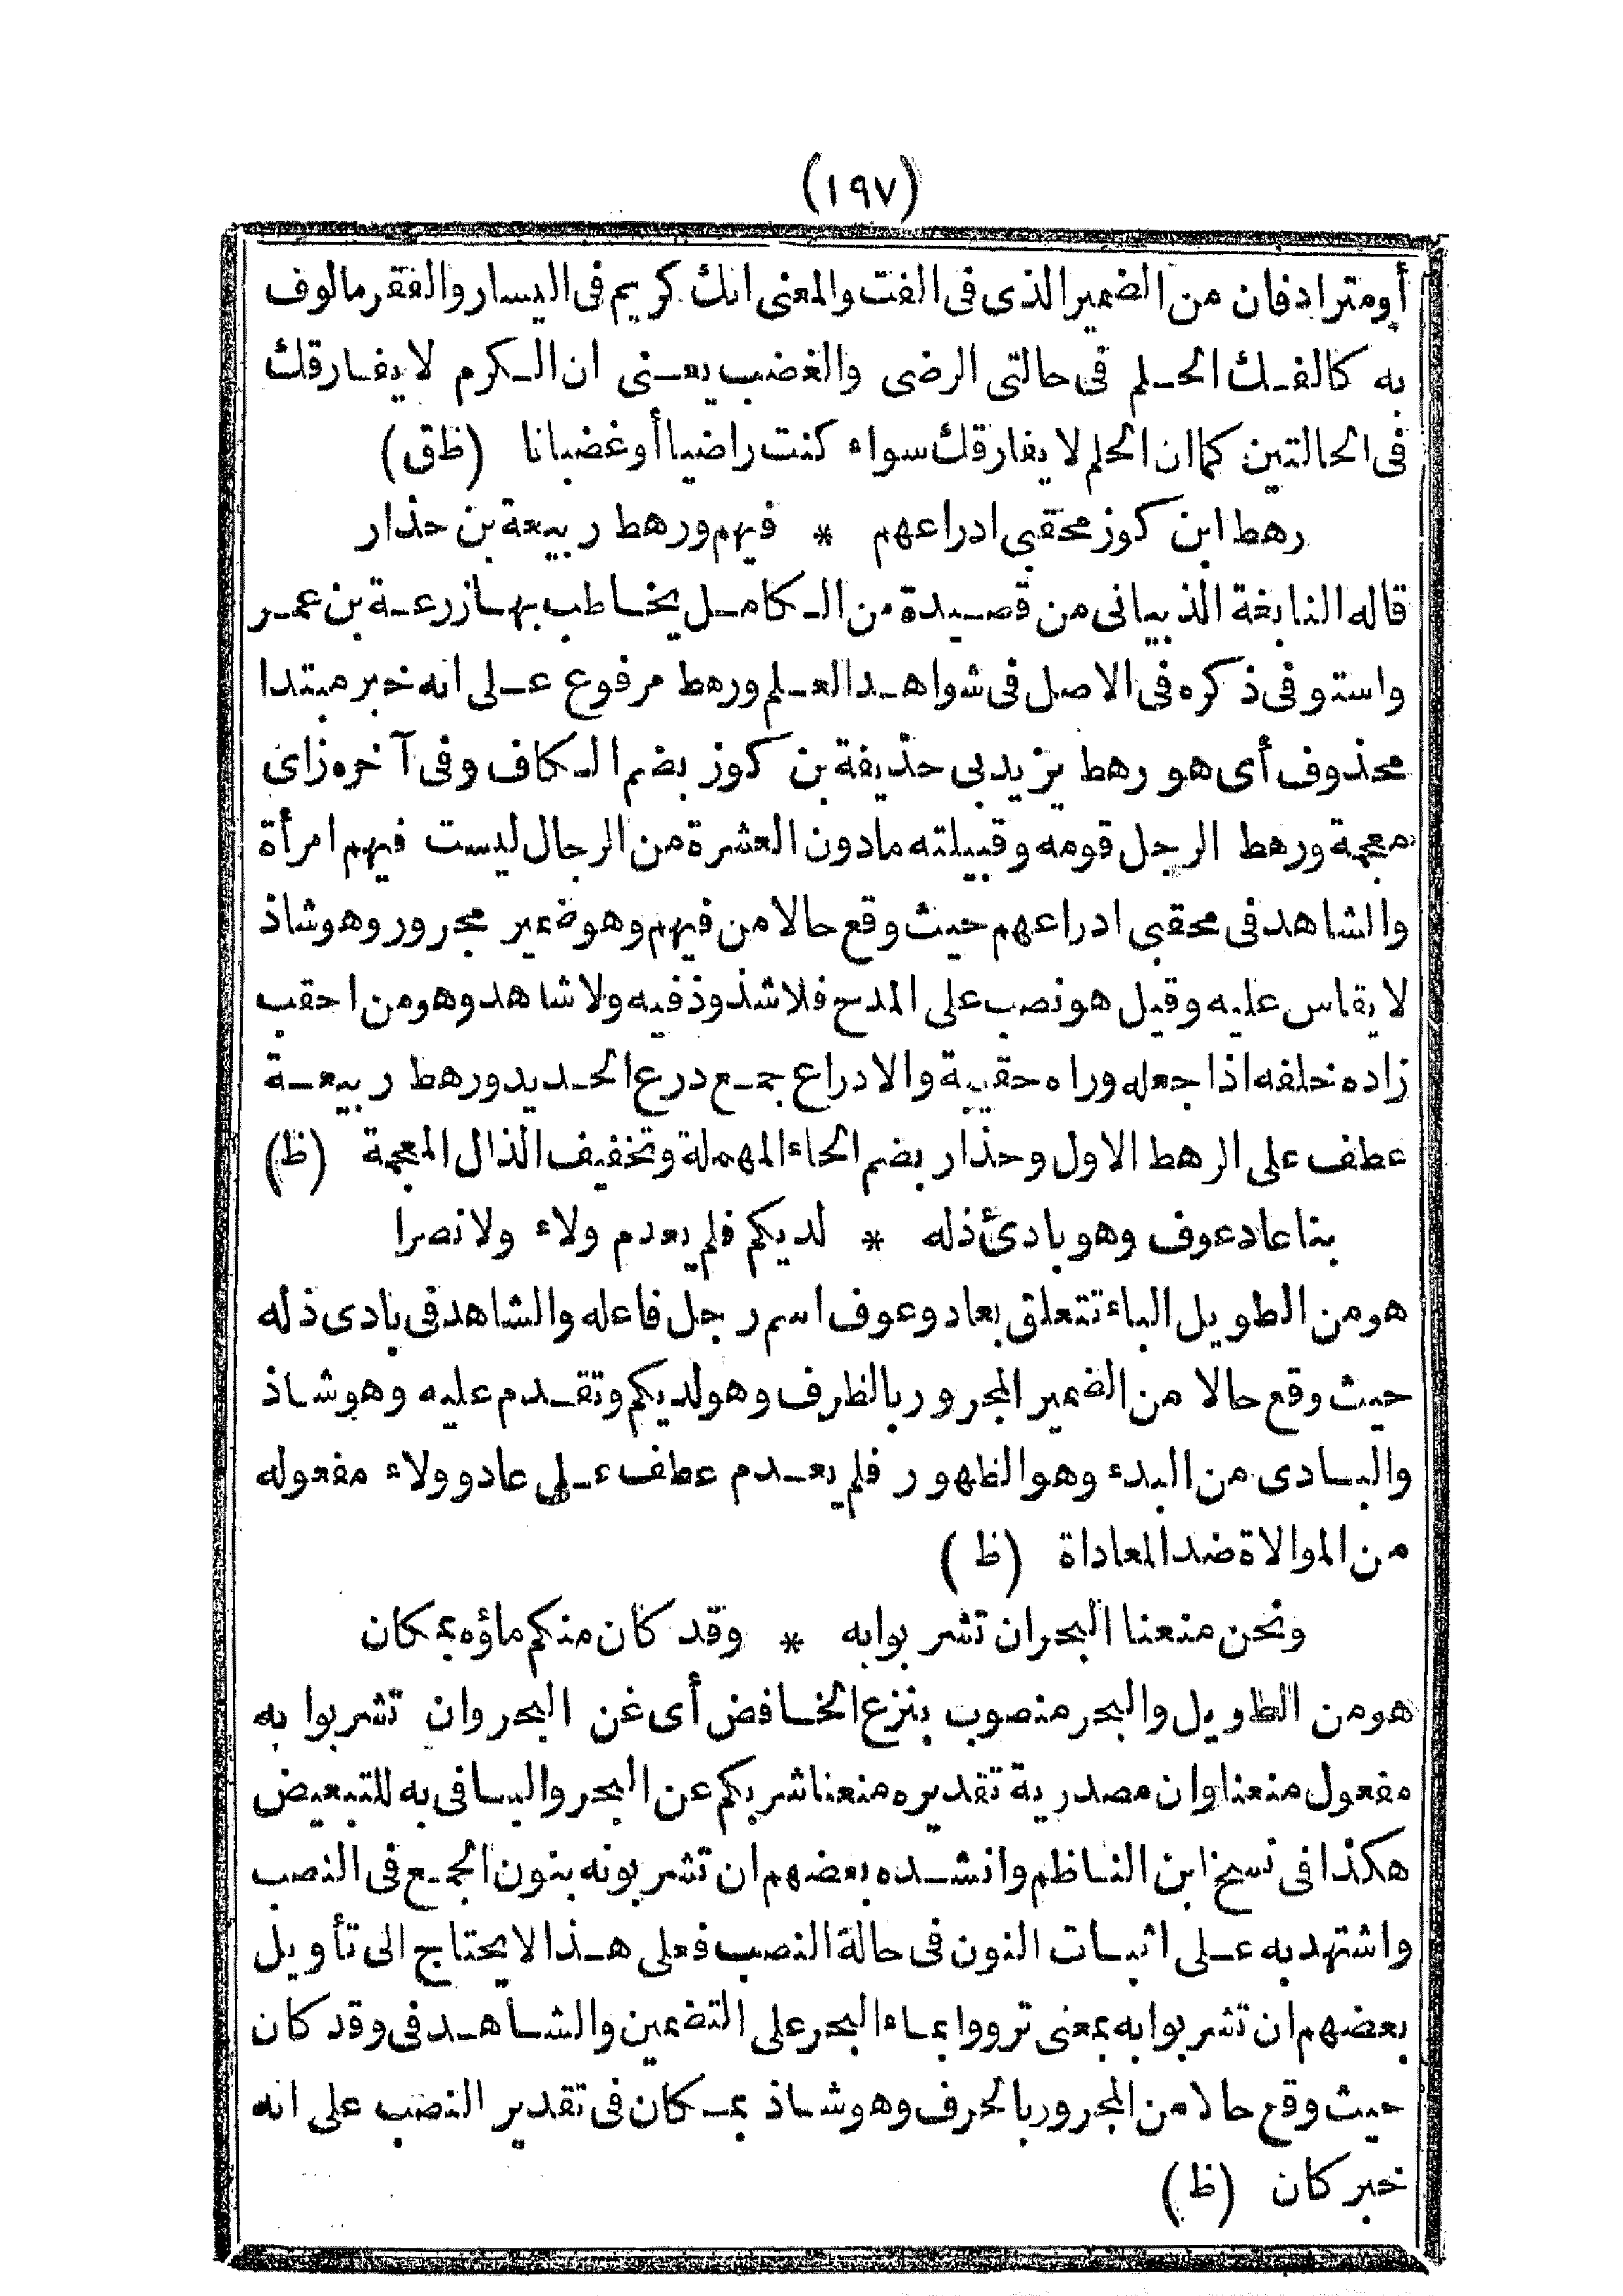 (١٩٧)
أومترادفان من الضمير الذى فى الفت والمعنى انك كريم فى اليسار والفقر مالوف
به كالفك الحلم فى حالتى الرضى والغضب يعنى ان الكرم لا يفارقك
فى الحالتين كما ان الحلم لا يفارقك سواء كنت راضيا أو غضبانا (ظق)
رهط ابن كوز محقبى ادراعهم * فيهم ورهط ربيعة بن حذار
قاله النابغة الذبيانى من قصيدة من الكامل يخاطب بها زرعة بن عمر
واستوفى ذكره فى الاصل فى شواهد العلم ورهط مرفوع على انه خبر مبتدا
محذوف أى هو رهط يزيد بى حذيفة بن كوز بضم الكاف وفى آخره زاى
معجمة ورهط الرجل قومه وقبيلته مادون العشرة من الرجال ليست فيهم امرأة
والشاهد فى محقبى ادراعهم حيث وقع حالا من فيهم وهو ضمير مجرور وهو شاذ
لا يقاس عليه وقيل هو نصب على المدح فلا شذوذ فيه ولا شاهد وهو من احقب
زاده خلفه اذا جعله وراه حقيبة والادراع جمع درع الحديد ورهط ربيعة
عطف على الرهط الاول وحذار بضم الحاء المهملة وتخفيف الذال المعجمة (ظ)
بنا عاد عوف وهو بادئ ذله * لديكم فلم يعدم ولاء ولا نصرا
هو من الطويل الباء تتعلق بعاد وعوف اسم رجل فاعله والشاهد فى بادى ذله
حيث وقع حالا من الضمير المجرور بالظرف وهو لديكم وتقدم عليه وهو شاذ
والبادى من البدء وهو الظهور فلم يعدم عطف على عاد وولاء مفعوله
من الموالاة ضد المعاداة (ظ)
ونحن منعنا البحر ان تشربوا به * وقد كان منكم ماؤه بمكان
هو من الطويل والبحر منصوب بنزع الخافض أى غن البحر وان تشربوا به
مفعول منعنا وان مصدرية تقديره منعنا شربكم عن البحر والبا فى به للتبعيض
هكذا فى نسخ ابن الناظم وانشده بعضهم ان تشربونه بنون الجمع فى النصب
واشتهد به على اثبات النون فى حالة النصب فعلى هذا لا يحتاج الى تأويل
بعضهم ان تشربوا به بمعنى ترووا بماء البحر على التضمين والشاهد فى وقد كان
حيث وقع حالا من المجرور بالحرف وهو شاذ بمكان فى تقدير النصب على انه
خبر كان (ظ)